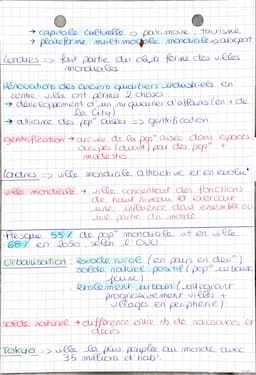 → capitale culturelle => patrimoine, tourisme
→ plateforme multimodale mondiale => aéroport
Londres => fait partie du club fermé des villes
mondiales
Rénovations des anciens quartiers industriels en
centre-ville ont permis 2 choses
→ développement d'un nv quartier d'affaires (en + de
la City)
→ attirance des pop° aisées => gentrification
gentrification → arrivée de la pop° aisée dans espaces
occupés (avant) par des pop° +
modestes
Londres => ville mondiale attractive et en évolu°
ville mondiale → ville concentrant des fonctions
de haut niveau et exerçant
une influence dans ensemble ou
une partie du monde
Presque 55% de pop° mondiale vit en ville
68% en 2050, selon l'ONU
Urbanisation exode rural (en pays en dev°)
solde naturel positif (pop° urbaine
jeune)
étalement urbain (intégrant
progressivement villes +
villages en périphérie)
solde naturel → différence entre nb de naissances et
décès
Tokyo => ville la plus peuplée au monde avec
35 millions d'hab.